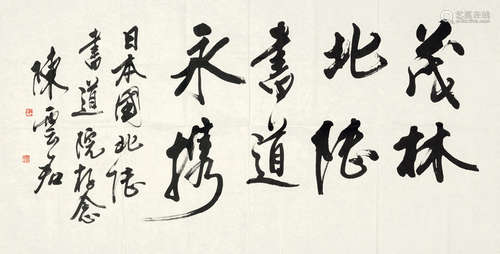 茂林
北陸
書道
永携
日本國北陸
書道院存念
陳雲君
艺狐在线